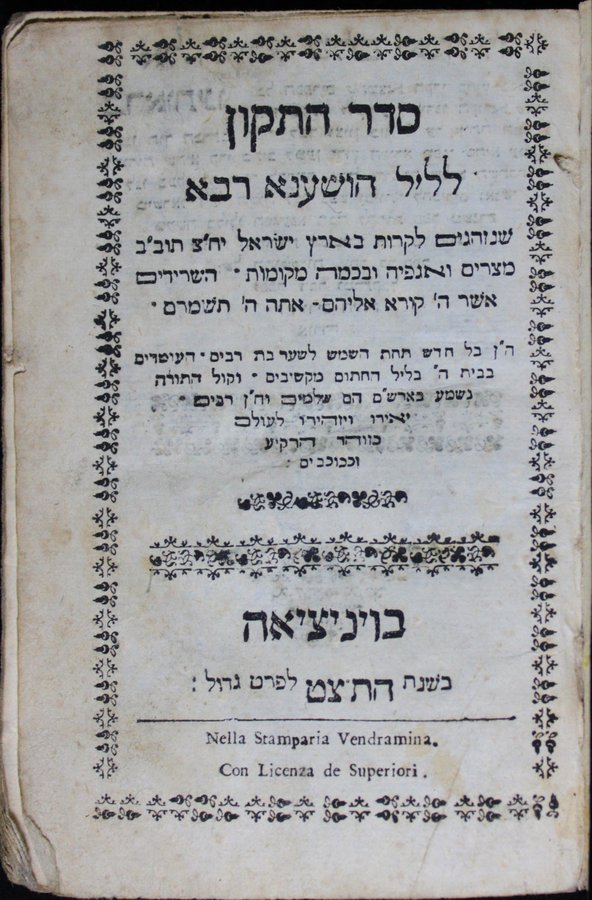 סדר התקון
לליל הושענא רבא
שנוהגים לקרות בארץ ישראל יח״צ תוב״ב
מצרים ואגפיה ובכמה מקומות · השרידים
אשר ה׳ קורא אליהם · אתה ה׳ תשמרם ·
ה״ן כל חדש תחת השמש לשער בת רבים · העומדים
בבית ה׳ בליל החתום מקשיבים · וקול התורה
נשמע בארש״ם הם שלמים וח״ן רבים ·
יאירו ויזהירו לעולם
כזוהר הרקיע
וככוכבים :
בויניציאה
בשנת התצט לפרט גדול :
Nella Stamparia Vendramina.
Con Licenza de Superiori.